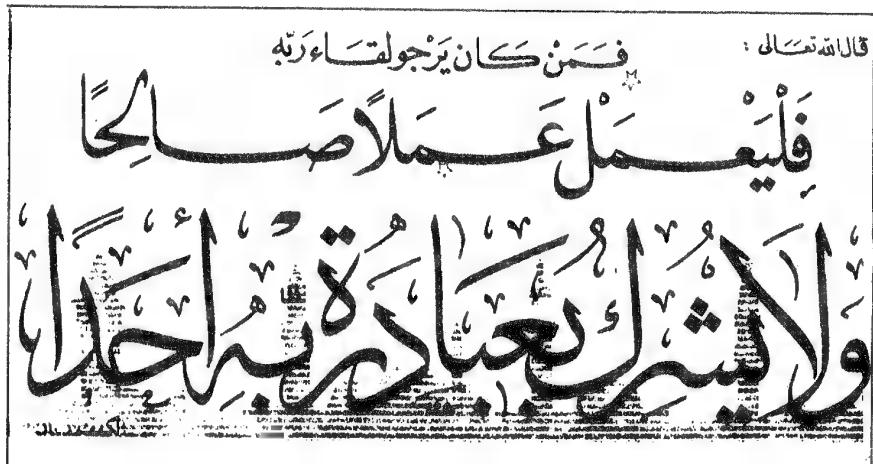 قال الله تعالى :
فَمَنْ كَانَ يَرْجُو لِقَاءَ رَبِّهِ
فَلْيَعْمَلْ عَمَلًا صَالِحًا
وَلَا يُشْرِكْ بِعِبَادَةِ رَبِّهِ أَحَدًا